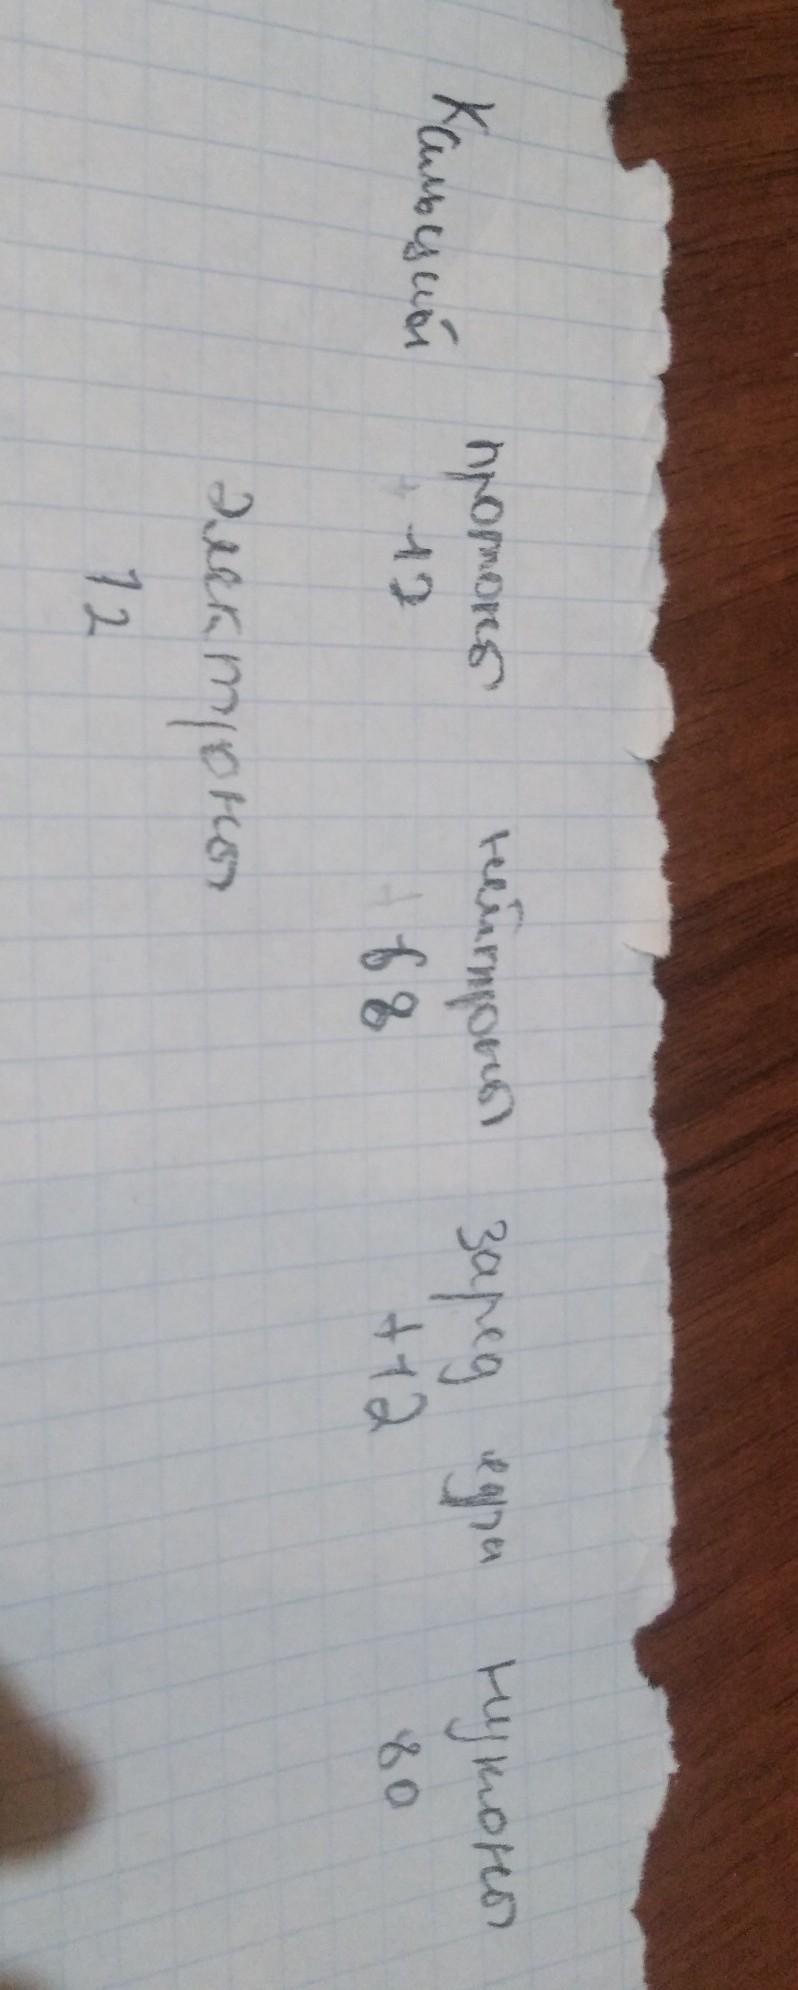 Кальций протоны нейтроны заред едра нуклоны
+12 +68 +12 80
электроны
12